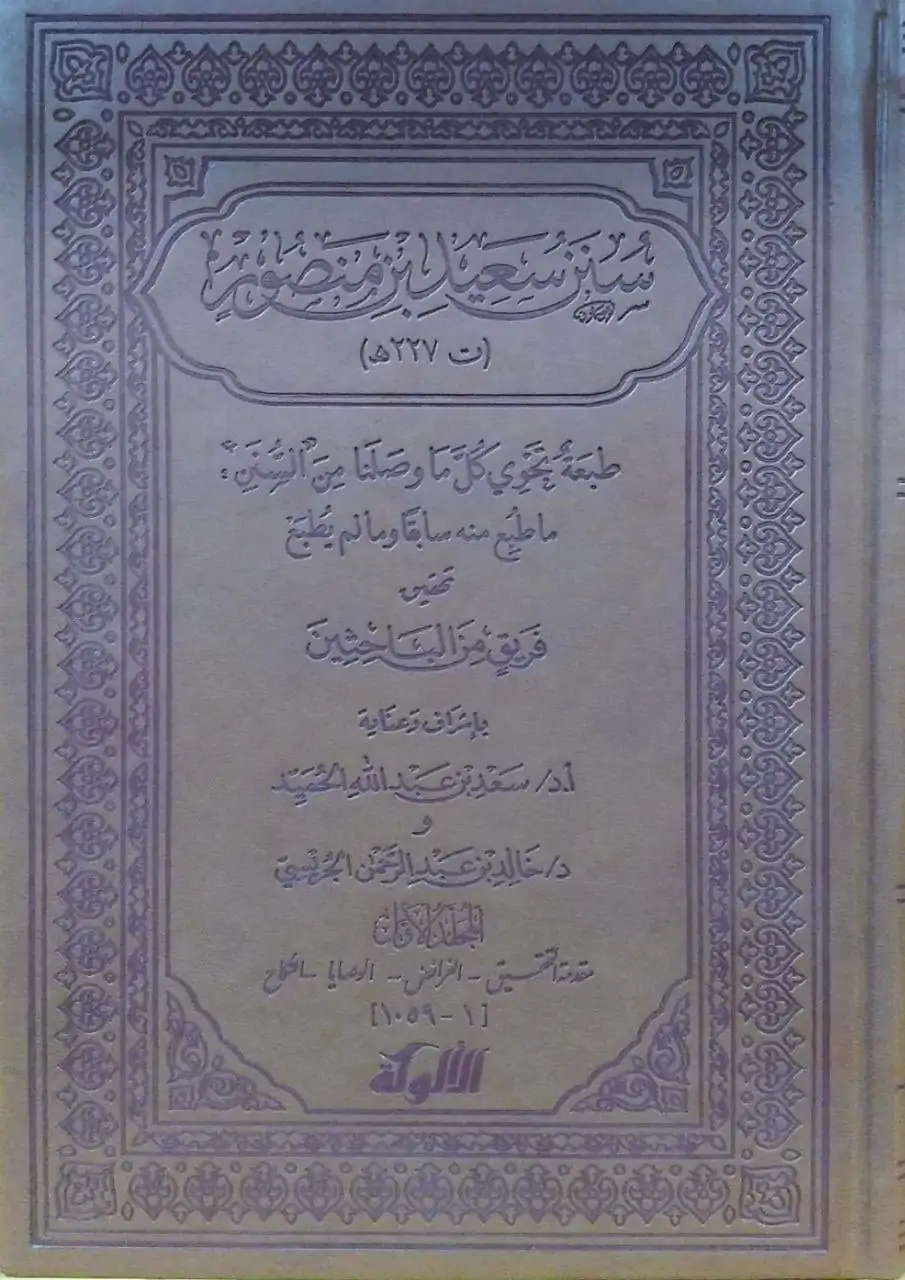 سُنَنُ سَعِيدِ بْنِ مَنْصُورٍ
(ت ٢٢٧ هـ)
طَبْعَةٌ تَحْوِي كُلَّ مَا وَصَلَنَا مِنَ "السُّنَنِ":
ما طُبِعَ منه سابقًا وما لم يُطْبَعْ
تحقيق
فَرِيقٍ مِنَ الْبَاحِثِينَ
بإشراف وعناية
أ.د/ سَعْدِ بْنِ عَبْدِ اللَّهِ الحُمَيِّد
و
د/ خَالِدِ بْنِ عَبْدِ الرَّحْمَنِ الجُرَيْسِيِّ
المُجَلَّدُ الأَوَّلُ
مقدمة التحقيق - الفرائض - الوصايا - النكاح
[١ - ١٠٥٩]
الألوكة